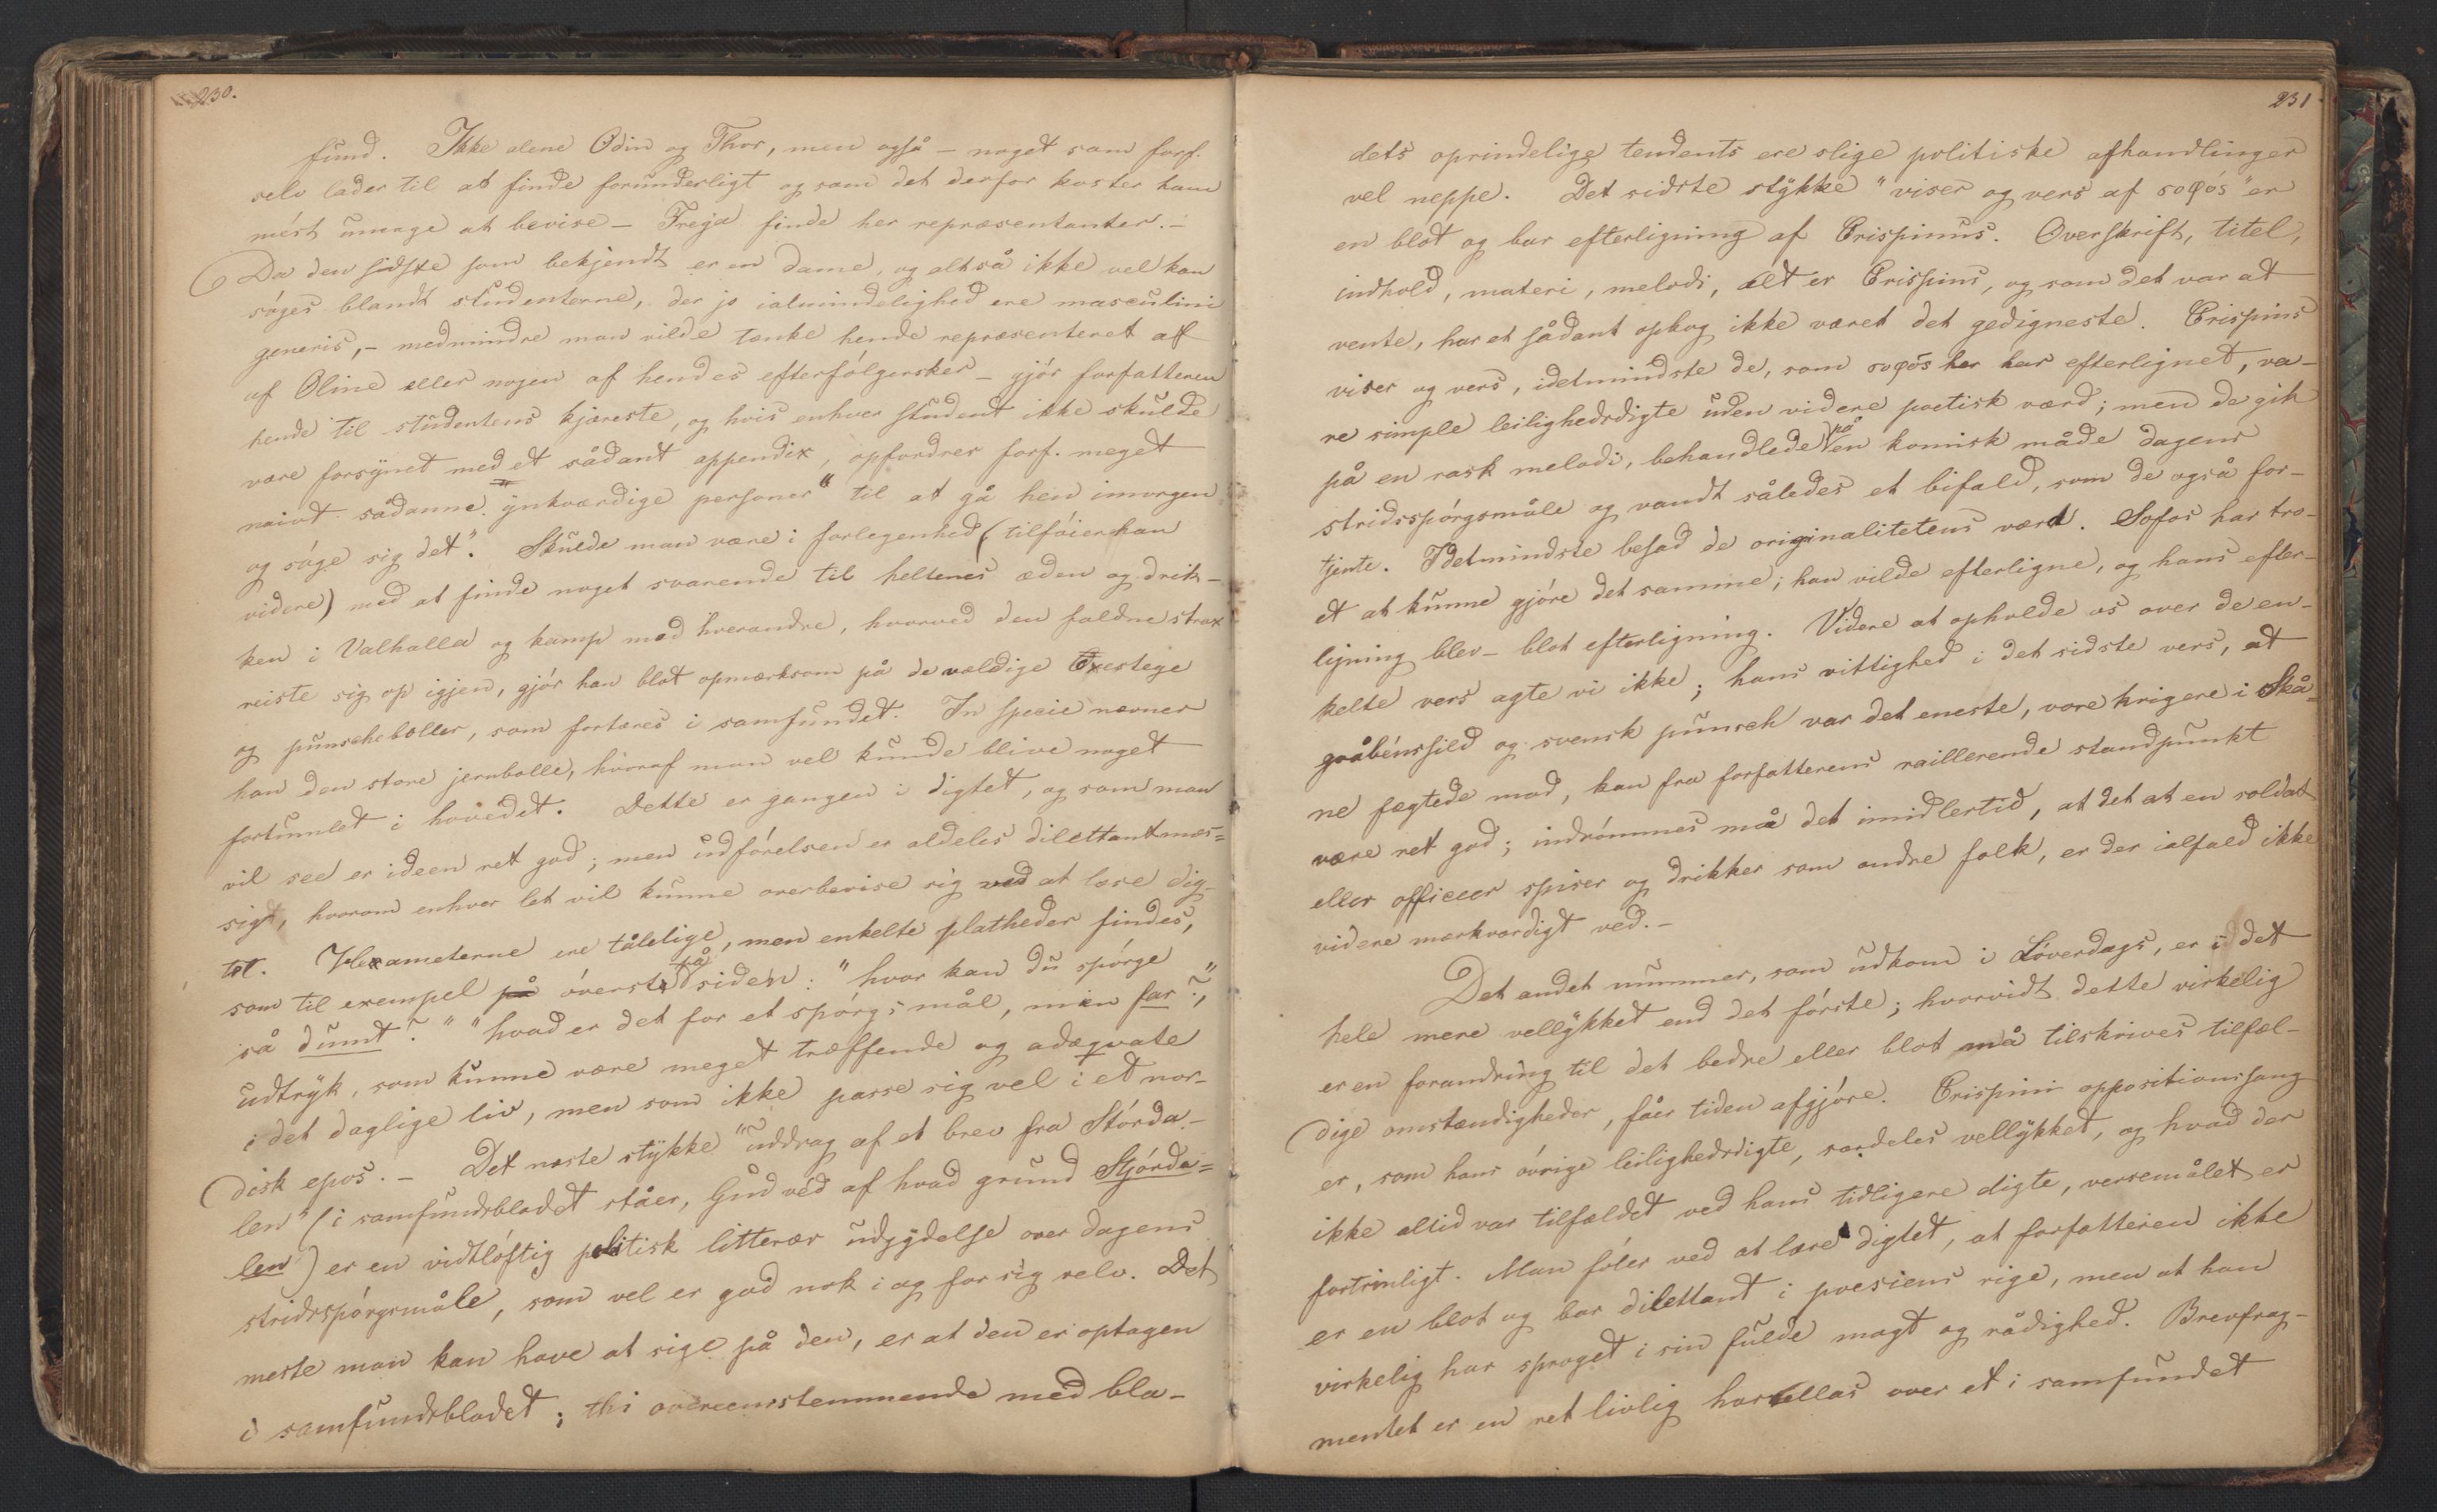 230.
fund. Ikke alene Odin og Thor, men også – noget som forf.
selv lader til at finde forunderligt og som det derfor koster ham
mést umage at bevise – Freja finde her repræsentanter. –
Da den sidste som bekjendt er en dame, og altså ikke vel kan
søges blandt studenterne, der jo ialmindelighed ere masculini
generis, – medmindre man vilde tænke hende repræsenteret af
af Oline eller nogen af hendes efterfølgersker – gjör forfatteren
hende til studentens kjæreste, og hvis enhver student ikke skulde
være forsynet med et sådant appendix, opfordrer forf. meget
naivt sådanne "ynkværdige personer" til at gå hen imorgen
og søge sig det". Skulde man være i forlegenhed (tilföier han
videre) med at finde noget svarende til heltenes æden og drik-
ken i Valhalla og kamp med hverandre, hvorved den faldne strax
reiste sig op igjen, gjör han blot opmærksom på de vældige Oxestege
og punscheboller, som fortæres i samfundet. In specie nævner
han den store jernbolle, hvoraf man vel kunde blive noget
fortumlet i hovedet. Dette er gangen i digtet, og som man
vil see er ideen ret god; men udförelsen er aldeles dilettantmæs=
sigt, hvorom enhver let vil kunne overbevise sig ved at læse dig-
tet. Hexameterne ere tålelige, men enkelte platheder findes,
som til exempel på överst på siden: "hvor kan du spörge
så dumt?" "hvad er det for et spörgsmål, min far?",
udtryk, som kunne være meget træffende og adæqvate
i det daglige liv, men som ikke passe sig vel i et nor-
disk epos. – Det næste stykke "uddrag af et brev fra Stórda-
len" (i samfundsbladet ståer, Gud véd af hvad grund Stjórda=
len) er en vidtlöftig politisk litterær udgydelse over dagens
stridsspörgsmåle, som vel er god nok i og for sig selv. Det
meste man kan have at sige på den, er at den er optagen
i samfundsbladet; thi overeenstemmende med bla-
231
dets oprindelige tendents ere slige politiske afhandlinger
vel neppe. Det sidste stykke "viser og vers af σοφός" er
en blot og bar efterligning af Crispinus. Overskrift, titel,
indhold, materi, melodi, alt er Crispins, og som det var at
vente, har et sådant opkog ikke været det gedigneste. Crispins
viser og vers, idetmindste de, som σοφός her har efterlignet, va-
re simple leilighedsdigte uden videre poetisk værd; men de gik
på en rask melodi, behandlede på en komisk måde dagens
stridsspörgsmåle og vandt således et bifald, som de også for-
tjente. Idetmindste besad de originalitetens værd. Sofos har tro-
et at kunne gjöre det samme; han vilde efterligne, og hans efter-
ligning blev – blot efterligning. Videre at opholde os over de en-
kelte vers agte vi ikke; hans vittighed i det sidste vers, at
gråbénssild og svensk punsch var det eneste, vore krigere i Skå=
ne fægtede mod, kan fra forfatterens raillerende standpunkt
være ret god; indrömmes må det imidlertid, at det at en soldat
eller officeer spiser og drikker som andre folk, er der ialfald ikke
videre mærkværdigt ved. –
Det andet nummer, som udkom i Löverdags, er i det
hele mere vellykket end det förste; hvorvidt dette virkelig
er en forandring til det bedre eller blot må tilskrives tilfæl-
dige omstændigheder, fåer tiden afgjöre. Crispini oppositionssang
er, som hans övrige leilighedsdigte, særdeles vellykket, og hvad der
ikke altid var tilfældet ved hans tidligere digte, versemålet er
fortrinligt. Man föler ved at læse digtet, at forfatteren ikke
er en blot og bar dilettant i poesiens rige, men at han
virkelig har sproget i sin fulde magt og rådighed. Brevfrag-
mentet er en ret livlig harcellas over et i samfundet